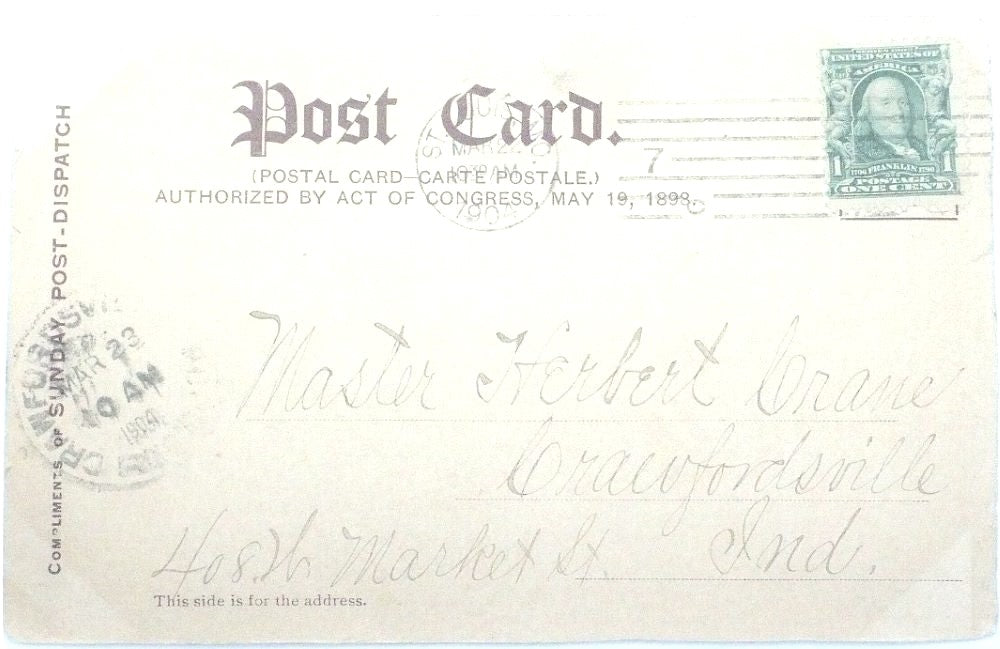 Post Card.
(POSTAL CARD—CARTE POSTALE.)
AUTHORIZED BY ACT OF CONGRESS, MAY 19, 1898.
COMPLIMENTS OF SUNDAY POST-DISPATCH
MAR 22
1904
7
UNITED STATES OF
AMERICA
1 FRANKLIN 1
POSTAGE
ONE CENT
MAR 23
10 AM
1904
Master Herbert Crane
Crawfordsville
408 W Market St. Ind.
This side is for the address.